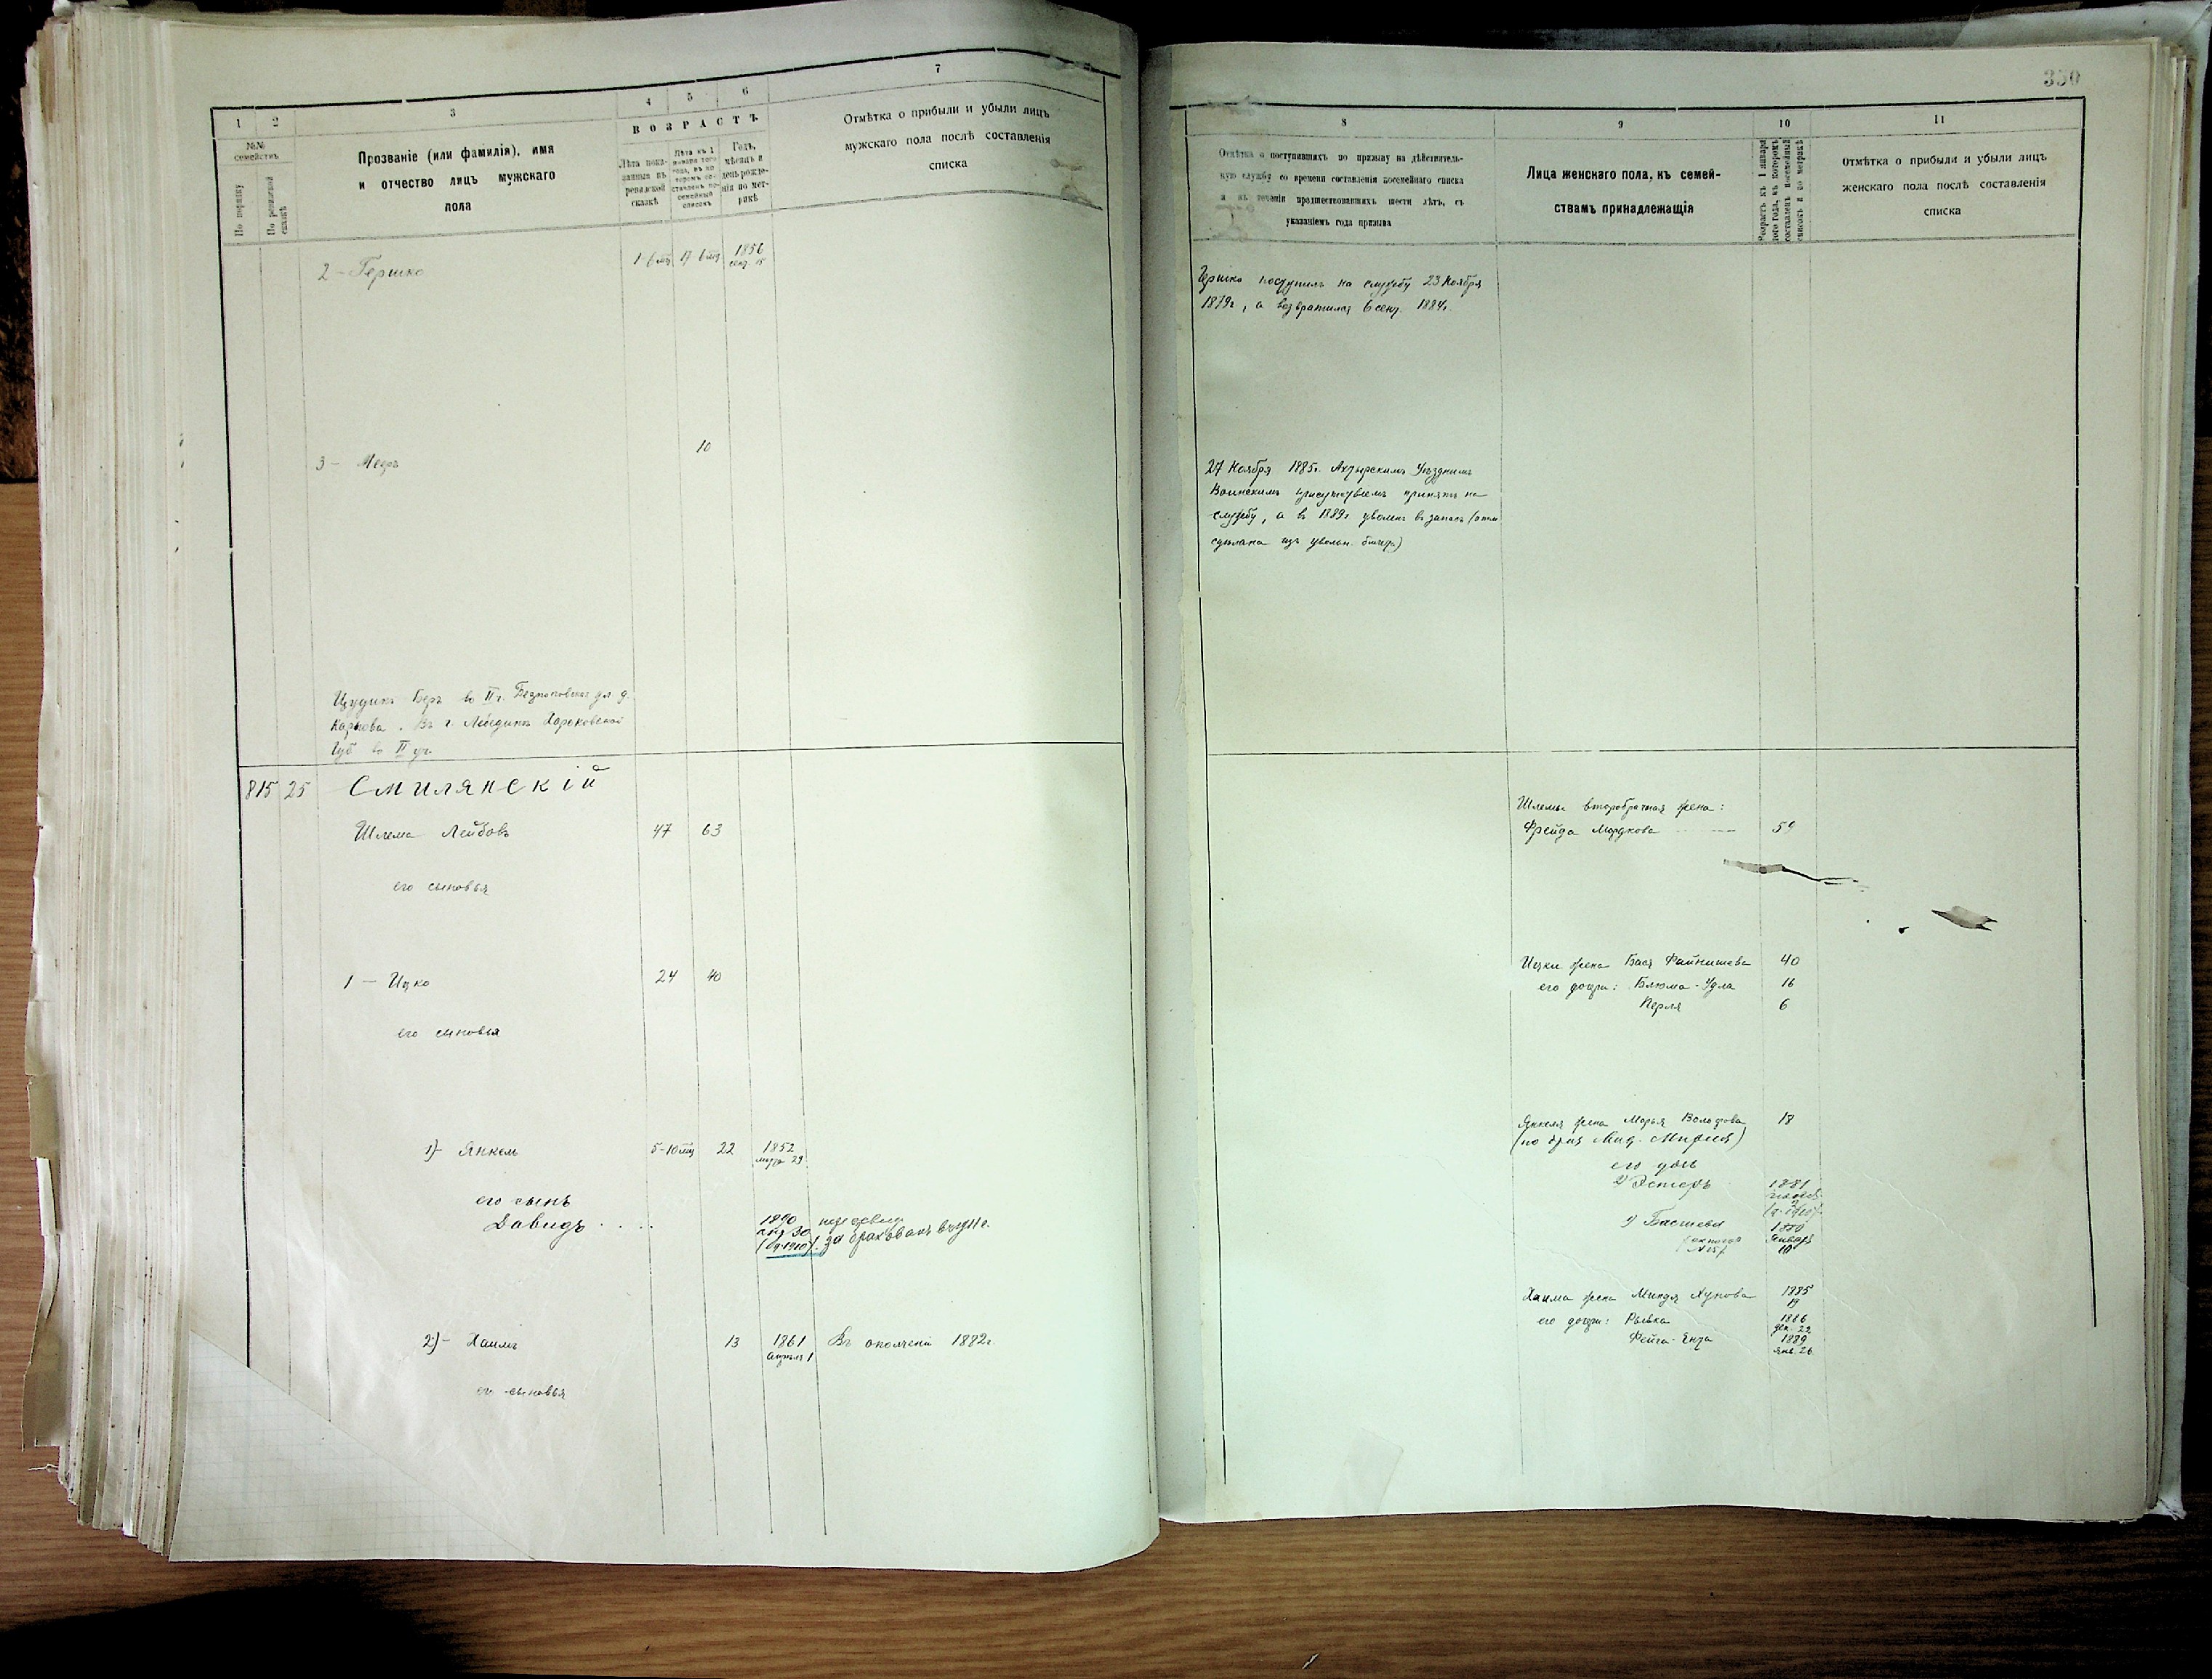 1
2
3
4
5
6
7
№№ семействъ
По порядку
По ревизской сказкѣ
Прозваніе (или фамилія), имя
и отчество лицъ мужскаго
пола
ВОЗРАСТЪ
Лѣта пока-
занныя въ
ревизской
сказкѣ
Лѣта къ 1
января того
года, въ ко
торомъ со-
ставленъ по-
семейный
списокъ
Годъ,
мѣсяцъ и
день рожде-
нія по мет-
рикѣ
Отмѣтка о прибыли и убыли лицъ
мужскаго пола послѣ составленія
списка
2 - Гершко
1-6 мц
17-6 мц
1856
сент. 15
3 - Мееръ
10
Карпова. Въ г. Лебединѣ Харьковской
Губ во II уч.
815
25
Смилянскій
Шлема Лейбовъ
47
63
его сыновья
1 - Ицко
24
40
его сыновья
1) - Янкель
5-10 мц
22
1852
марта 29
его сынъ
Давидъ
1890
апр 30
(пр. 1910) г.
забракованъ въ 1911 г.
2) - Хаимъ
13
1861
Апрѣля 1
Въ ополченіи 1882 г.
его сыновья
350
8
9
10
11
Отмѣтка о поступившихъ по призыву на дѣйствитель-
ную службу со времени составленія посемейнаго списка
и въ теченіи предшествовавшихъ шести лѣтъ, съ
указаніемъ года призыва
Лица женскаго пола, къ семей-
ствамъ принадлежащія
Возрастъ къ 1 января
того года, въ которомъ
составленъ посемейный
списокъ и по метрикѣ
Отмѣтка о прибыли и убыли лицъ
женскаго пола послѣ составленія
списка
Гершко поступилъ на службу 23 Ноября
1879 г, а возвратился 6 сент. 1884 г.
27 Ноября 1885 г. Ахтырскимъ Уѣзднымъ
Воинскимъ присутствіемъ принятъ на
службу, а въ 1889 г уволенъ въ запасъ (отм
сдѣлана изъ увольн. билета)
Шлемы второбрачная жена:
Фрейда Мордкова
59
Ицки жена Бася Файнишева
40
его дочери: Блюма-Удля
16
Перля
6
Янкеля жена Марья Вольфова
18
его дочь
2) Эстеръ
1881
1) Басшева
1880
Январь
10
Хаима жена Миндя Хунова
1885
19
его дочери: Рывка
1886
дек. 22
Фейга-Ента
1889
янв. 26